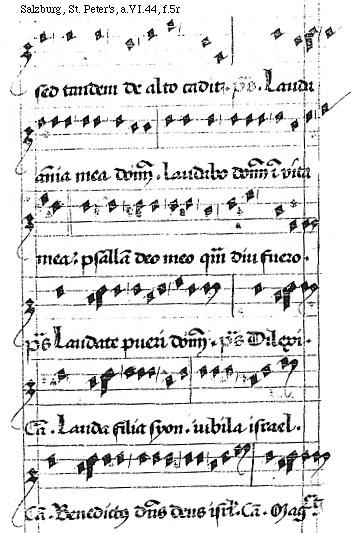 Salzburg, St. Peter's, a.VI.44, f.5r
sed tandem de alto cadit. p̄s. Lauda
aīa mea dominū. Laudabo dominū ī vita
mea: psallā deo meo quādiu fuero.
p̄s Laudate pueri domiñ. p̄s Dilexi.
Cā. Lauda filia syon. iubila israel.
Cā. Benedictus dn̄s deus isrl̄. Cā. Magct̄